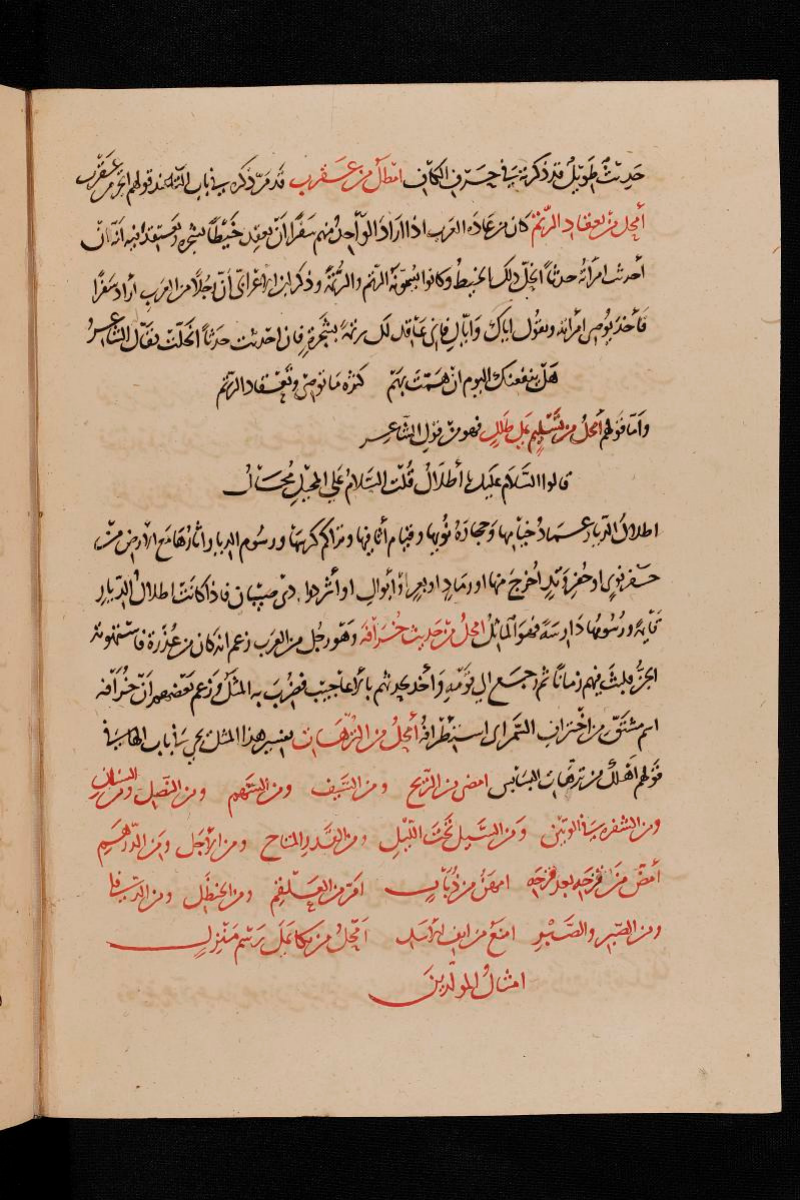 حديث طويل قد ذكرته في حرف الكاف امطل من عقرب قد مرّ ذكره في باب التاء عند قولهم اتجر من عقرب
أمحل من تعقاد الرتم كان من عادة العرب اذا اراد الواحد منهم سفرًا أن يعقد خيطًا بشجرة ويعتقد فيه انه ان
أحدثت امرأته حدثًا انحل ذلك الخيط وكانوا يسمونه الرتم والرتمة وذكر ابن الاعرابي أن رجلًا من العرب أراد سفرًا
فأخذ يوصي امرأته ويقول اياك وايّاك فاني عاقد لك رتمة بشجرة فان احدثت حدثًا انحلت فقال الشاعر
هل ينفعنك اليوم ان همّت بهم كثرة ما توصي وتعقاد الرتم
وأما قولهم أمحل من تسليم على طلل فهو من قول الشاعر
قالوا السلام عليك يا أطلال قلت السلام على المحيل محال
اطلال الديار عماد خيامها وحجارة نؤيها وقيام أثافيها وتراكم كرسها ورسوم الديار واثارها مع الارض من
حفر نؤي او حفرة وتد أخرج منها او رماد او بعر او أبوال او أثر دوادي صبيان فاذا كانت اطلال الديار
قائمة ورسومها دارسة فهو الماثل امحل من حديث خرافة وهو رجل من العرب زعم انه كان من عذرة فاستهوته
الجن فلبث فيهم زمانًا ثم رجع الى قومه وأخذ يحدثهم بالأعاجيب فضرب به المثل وزعم بعضهم أن خرافة
اسم مشتق من اختراف الثمر اى استطرافه أمحل من الترهات تفسير هذا المثل يجي في باب الهاء في
قولهم اهلك من ترهات البسابس امضى من الريح ومن السيف ومن السهم ومن النصل ومن السنان
ومن الشفرة في الوتين ومن السيل تحت الليل ومن القدر المتاح ومن الأجل ومن الدرهم
أمض من قرحة بعد قرحة امهن من ذباب امرّ من العلقم ومن الحنظل ومن الدفلى
ومن الصبر والصبر امنع من انف الاسد أمحل من بكا على رسم منزل
امثال المولّدين